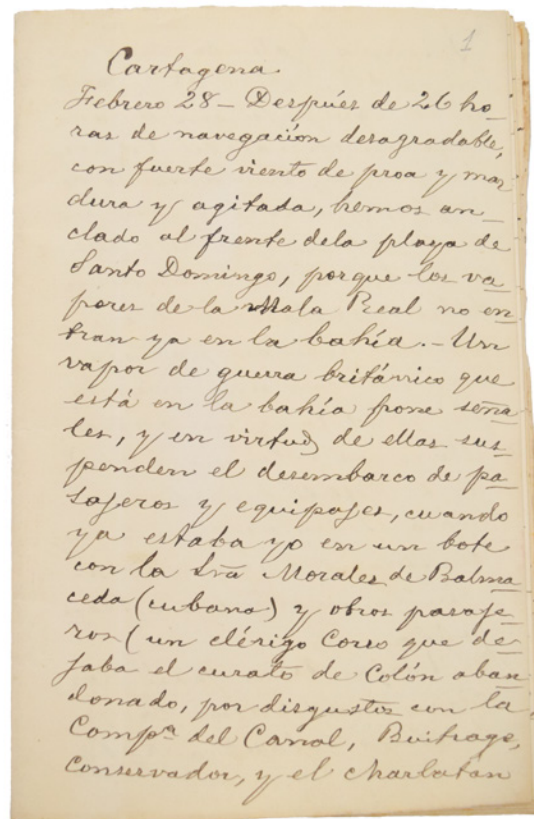 1
Cartagena
Febrero 28 – Después de 26 ho-
ras de navegación desagradable,
con fuerte viento de proa y mar
dura y agitada, hemos an-
clado al frente dela playa de
Santo Domingo, porque los va-
pores de la Mala Real no en-
tran ya en la bahía. – Un
vapor de guerra británico que
está en la bahía pone seña-
les, y en virtud de ellas sus-
penden el desembarco de pa-
sajeros y equipajes, cuando
ya estaba yo en un bote
con la Srã Morales de Balma-
ceda (cubana) y otros pasaje-
ros (un clérigo Corso que de-
jaba el curato de Colón aban-
donado, por disgustos con la
Compª del Canal, Buitrago,
conservador, y el charlatán